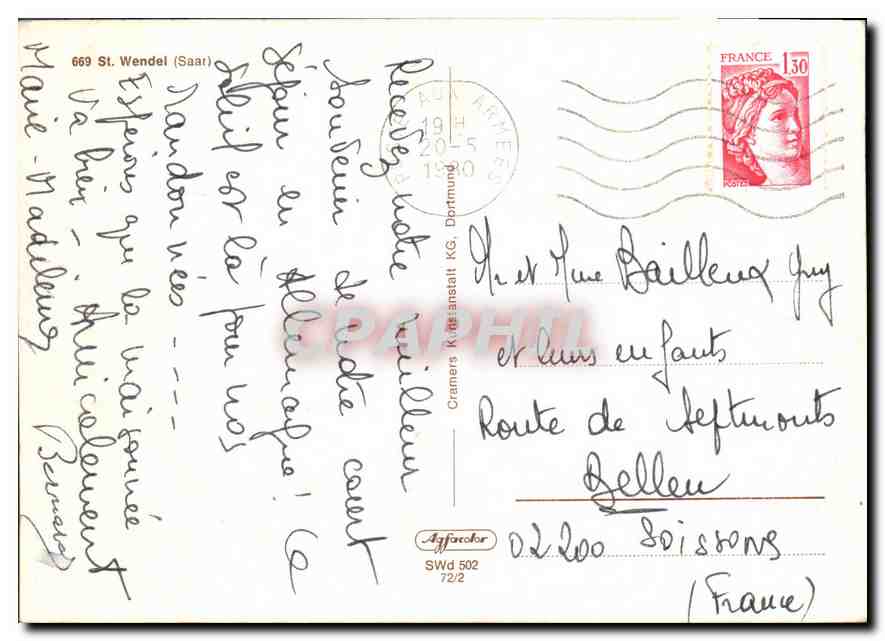 669 St. Wendel (Saar)
Recevez notre meilleur
souvenir de notre court
séjour en Allemagne! Le
soleil est là pour nos
randonnées ----
Espérons que la maisonnée
va bien - Amicalement
Marie-Madeleine Bernard
POSTE AUX ARMEES
19 H
20-5
1980
FRANCE 1,30
POSTES
Cramers Kunstanstalt KG, Dortmund
CPAPHIL
Mr et Mme Bailleux Guy
et leurs enfants
Route de Septmonts
Belleu
02200 SOISSONS
(France)
Agfacolor
SWd 502
72/2